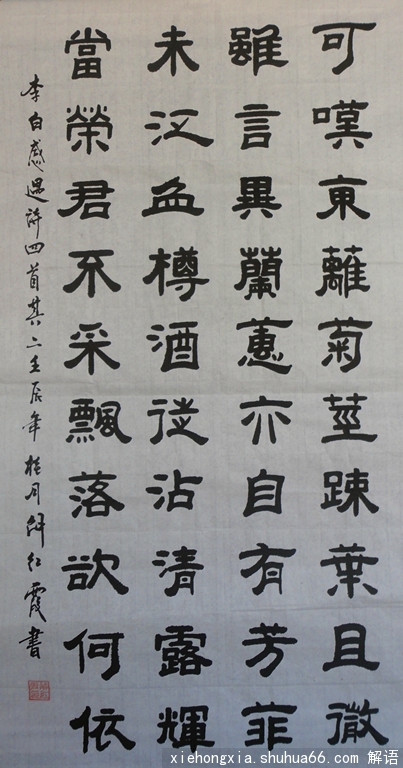 可嘆東蘺菊莖踈葉且微
雖言異蘭蕙亦自有芳菲
未汎盈樽酒徒沾清露輝
當榮君不采飄落欲何依
李白感遇詩四首其二壬辰年桂月解红霞書
xiehongxia.shuhua66.com 解语